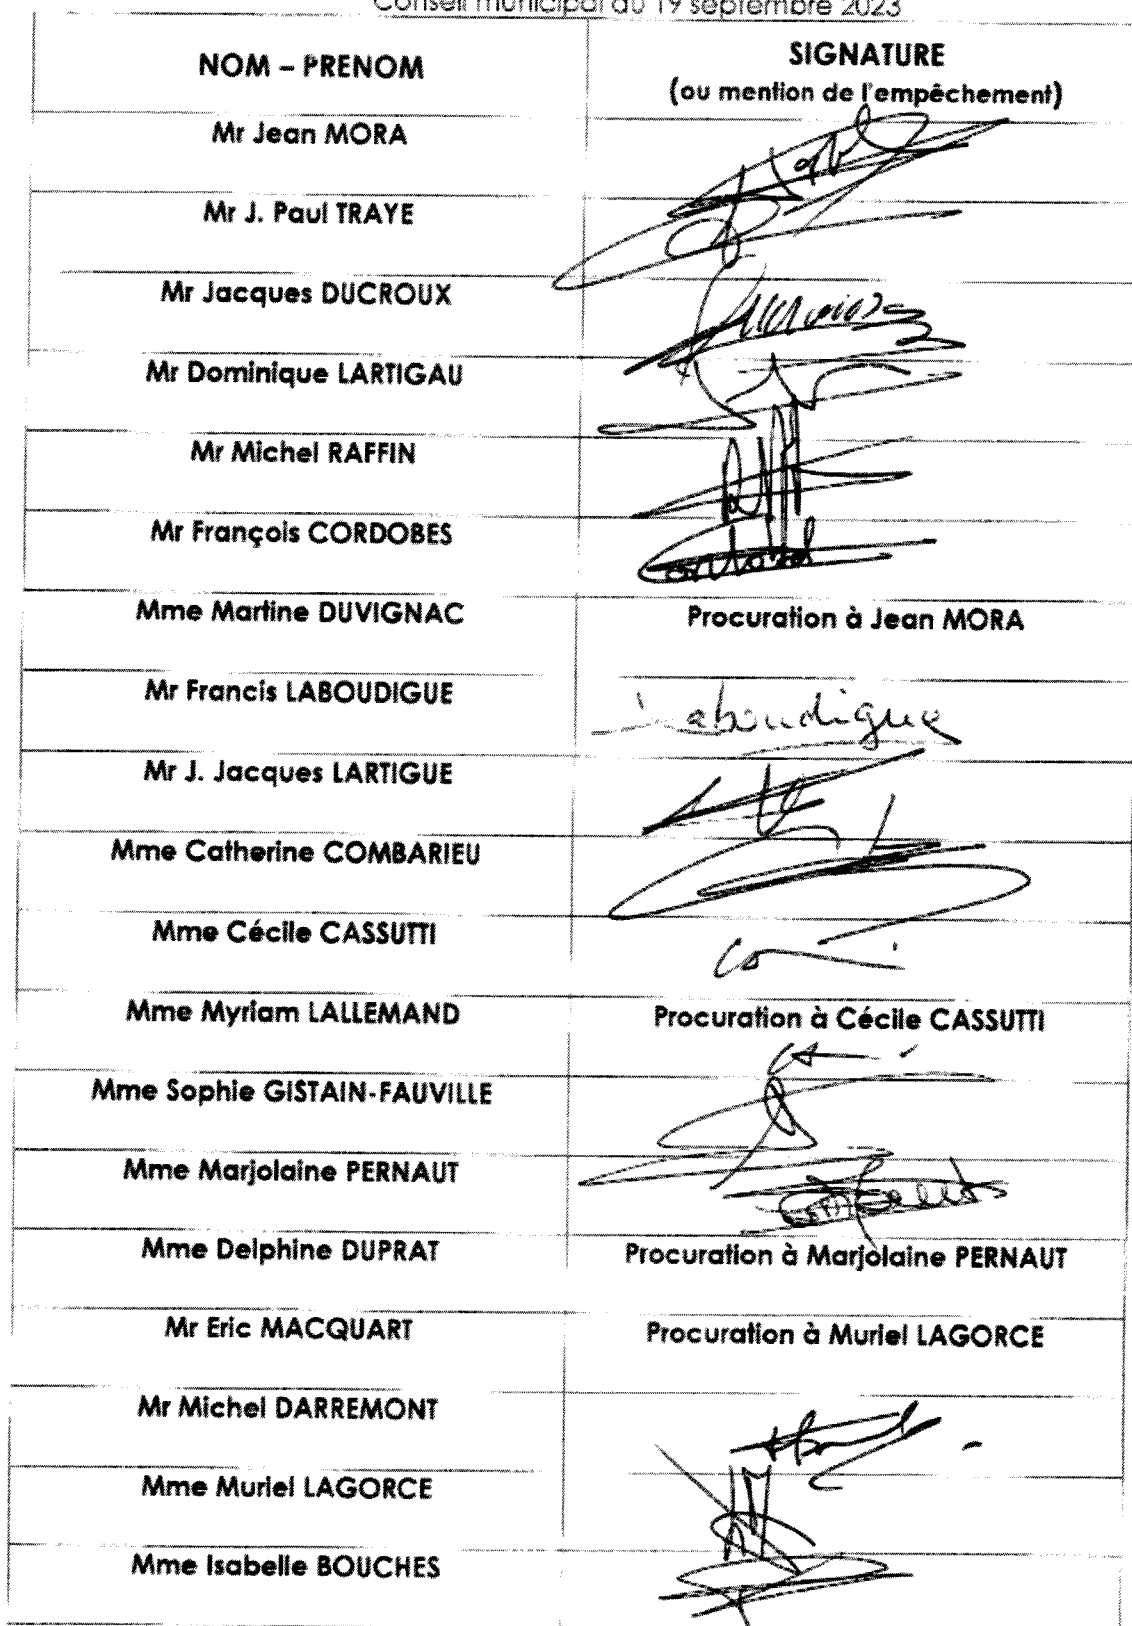 Conseil municipal du 19 septembre 2023
NOM – PRENOM
SIGNATURE
(ou mention de l'empêchement)
Mr Jean MORA
Mr J. Paul TRAYE
Mr Jacques DUCROUX
Mr Dominique LARTIGAU
Mr Michel RAFFIN
Mr François CORDOBES
Mme Martine DUVIGNAC
Procuration à Jean MORA
Mr Francis LABOUDIGUE
Laboudigue
Mr J. Jacques LARTIGUE
Mme Catherine COMBARIEU
Mme Cécile CASSUTTI
Mme Myriam LALLEMAND
Procuration à Cécile CASSUTTI
Mme Sophie GISTAIN-FAUVILLE
Mme Marjolaine PERNAUT
Mme Delphine DUPRAT
Procuration à Marjolaine PERNAUT
Mr Eric MACQUART
Procuration à Muriel LAGORCE
Mr Michel DARREMONT
Mme Muriel LAGORCE
Mme Isabelle BOUCHES